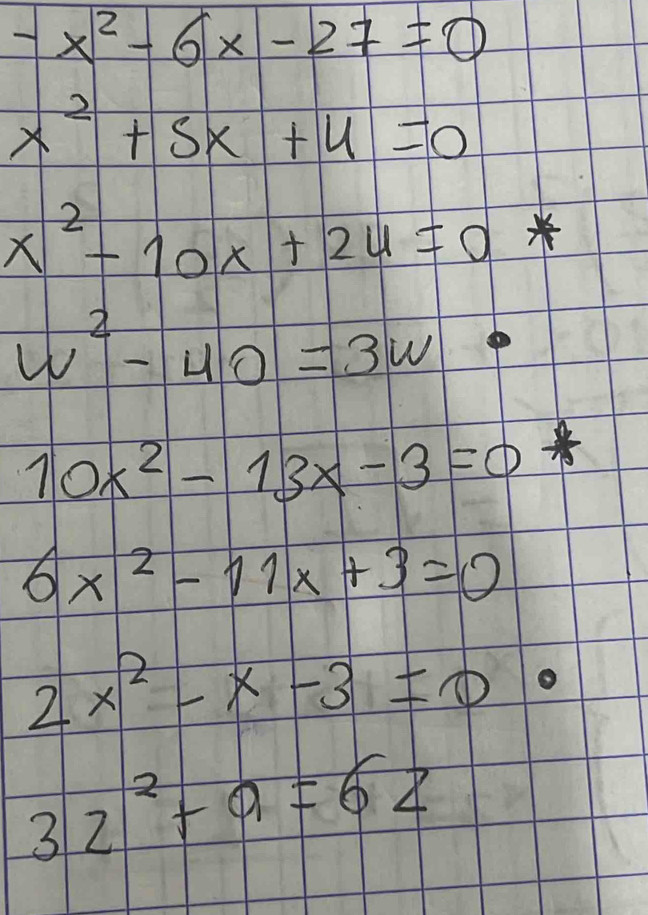 - x² - 6x - 27 = 0
x² + 5x + 4 = 0
x² - 10x + 24 = 0 *
w² - 40 = 3w •
10x² - 13x - 3 = 0 *
6x² - 11x + 3 = 0
2x² - x - 3 = 0 •
3z² + 9 = 6z